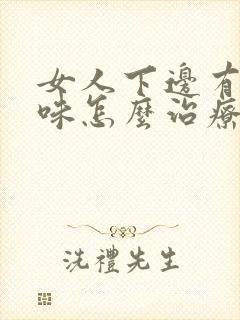 女人下邊有
味怎麼治療
洗禮先生